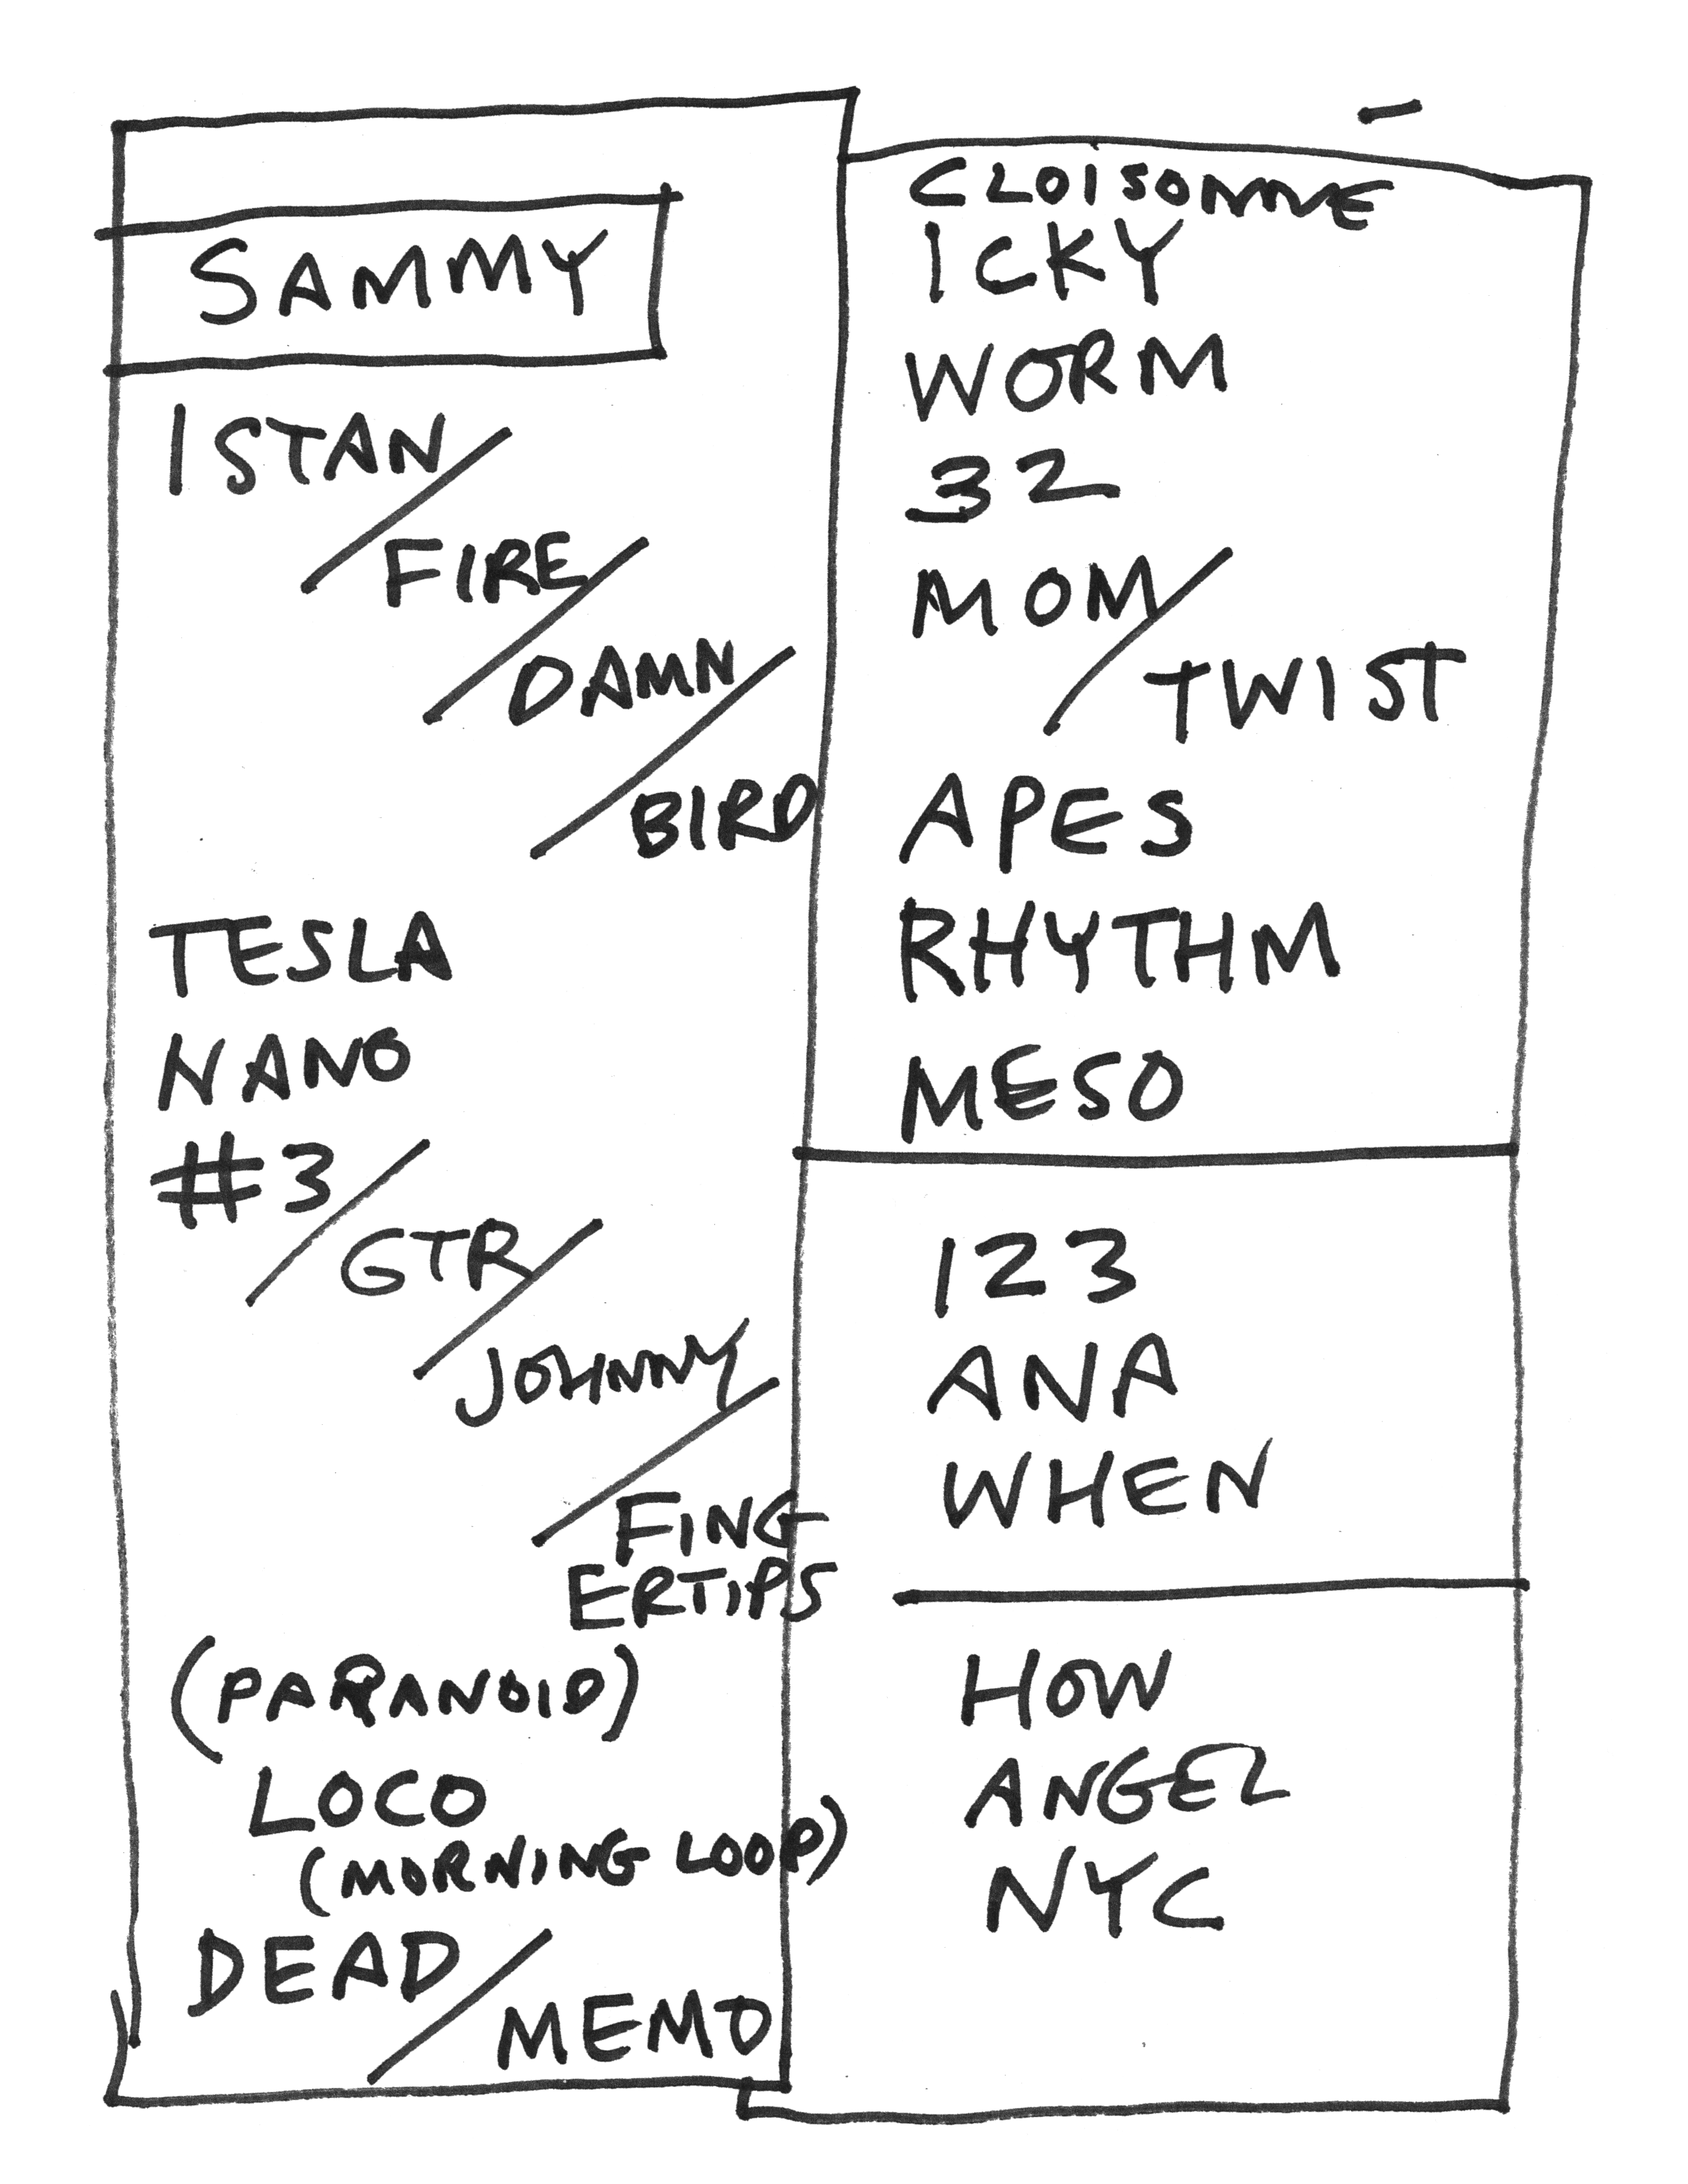 SAMMY
ISTAN/
FIRE/
DAMN/
BIRD
TESLA
NANO
#3/
GTR/
JOHNNY/
FING
ERTIPS
(PARANOID)
LOCO
(MORNING LOOP)
DEAD/
MEMO
CLOISONNE
ICKY
WORM
32
MOM/
TWIST
APES
RHYTHM
MESO
123
ANA
WHEN
HOW
ANGEL
NYC